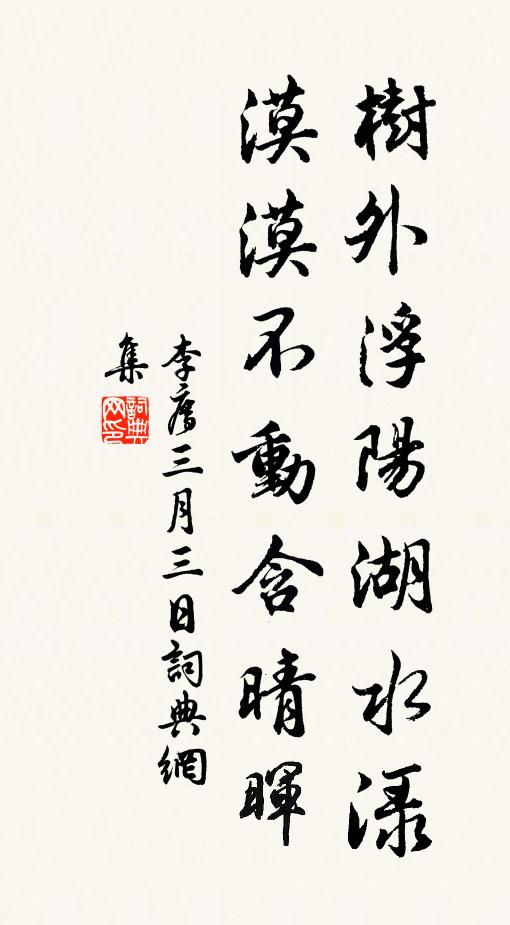 樹外浮陽湖水淥
漠漠不動含晴暉
李廌三月三日詞典網
集
詞典
网印